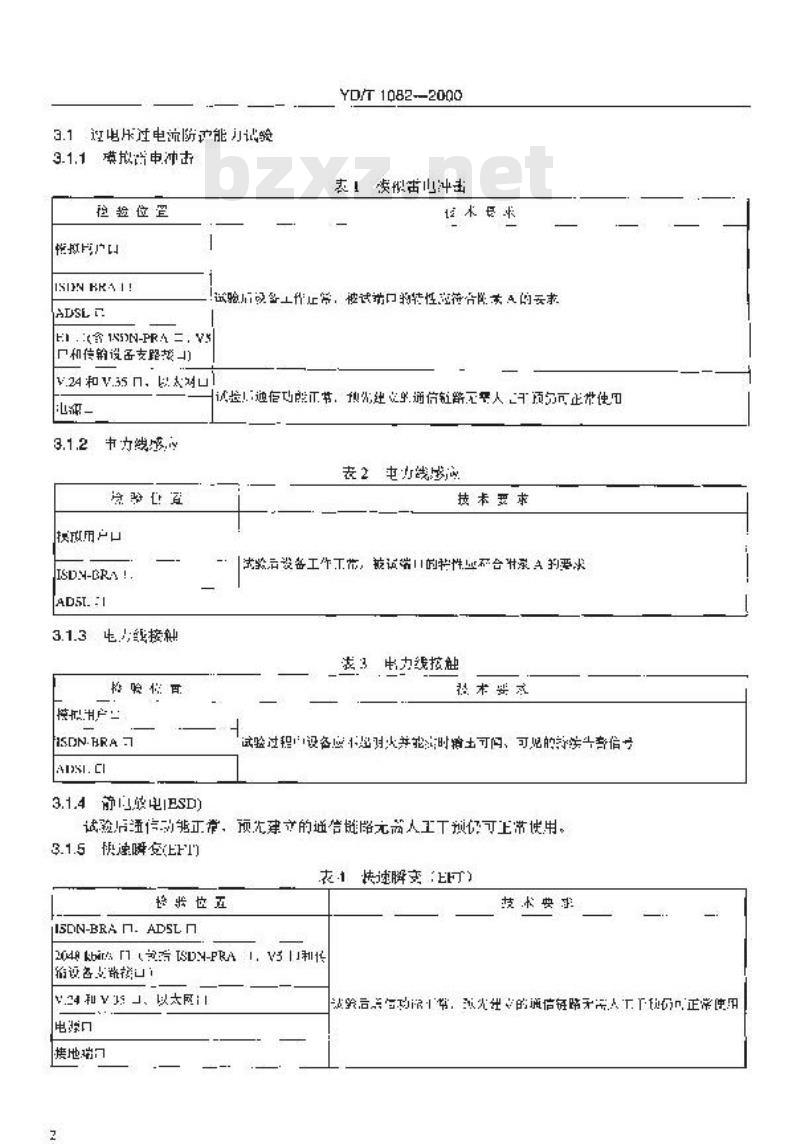 YD/T 1082—2000
3.1 过电压过电流防护能力试验
3.1.1 模拟雷电冲击
bzxz.net
表1 模拟雷电冲击
检验位置 技术要求
模拟用户口
ISDN BRA 口
试验后设备工作正常，被试端口的特性应符合附录 A 的要求
ADSL 口
E1 口(含 ISDN-PRA 口、V5
口和传输设备支路接口)
V.24 和 V.35 口、以太网口
试验后通信功能正常，预先建立的通信链路无需人工干预仍可正常使用
电源口
3.1.2 电力线感应
表2 电力线感应
检验位置 技术要求
模拟用户口
试验后设备工作正常，被试端口的特性应符合附录 A 的要求
ISDN-BRA 口
ADSL 口
3.1.3 电力线接触
表3 电力线接触
检验位置 技术要求
模拟用户口
ISDN-BRA 口
试验过程中设备应不起明火并能实时输出可闻、可见的持续告警信号
ADSL 口
3.1.4 静电放电(ESD)
试验后通信功能正常，预先建立的通信链路无需人工干预仍可正常使用。
3.1.5 快速瞬变(EFT)
表4 快速瞬变（EFT）
检验位置 技术要求
ISDN-BRA 口、ADSL 口
2048 kbit/s 口（包括 ISDN-PRA 口、V5 口和传
输设备支路接口）
V.24 和 V.35 口、以太网口
试验后通信功能正常，预先建立的通信链路无需人工干预仍可正常使用
电源口
接地端口
2